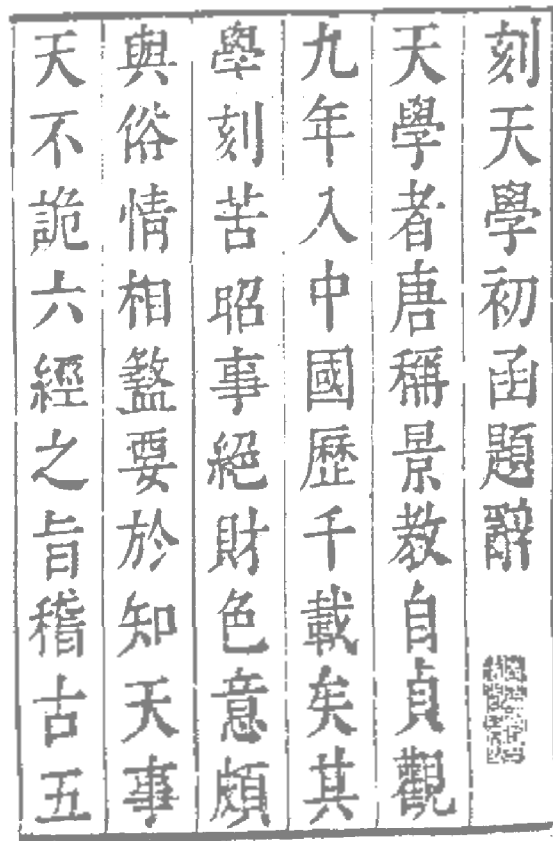 刻天學初函題辭
天學者唐稱景教自貞觀
九年入中國歷千載矣其
學刻苦昭事絕財色意頗
與俗情相盭要於知天事
天不詭六經之旨稽古五